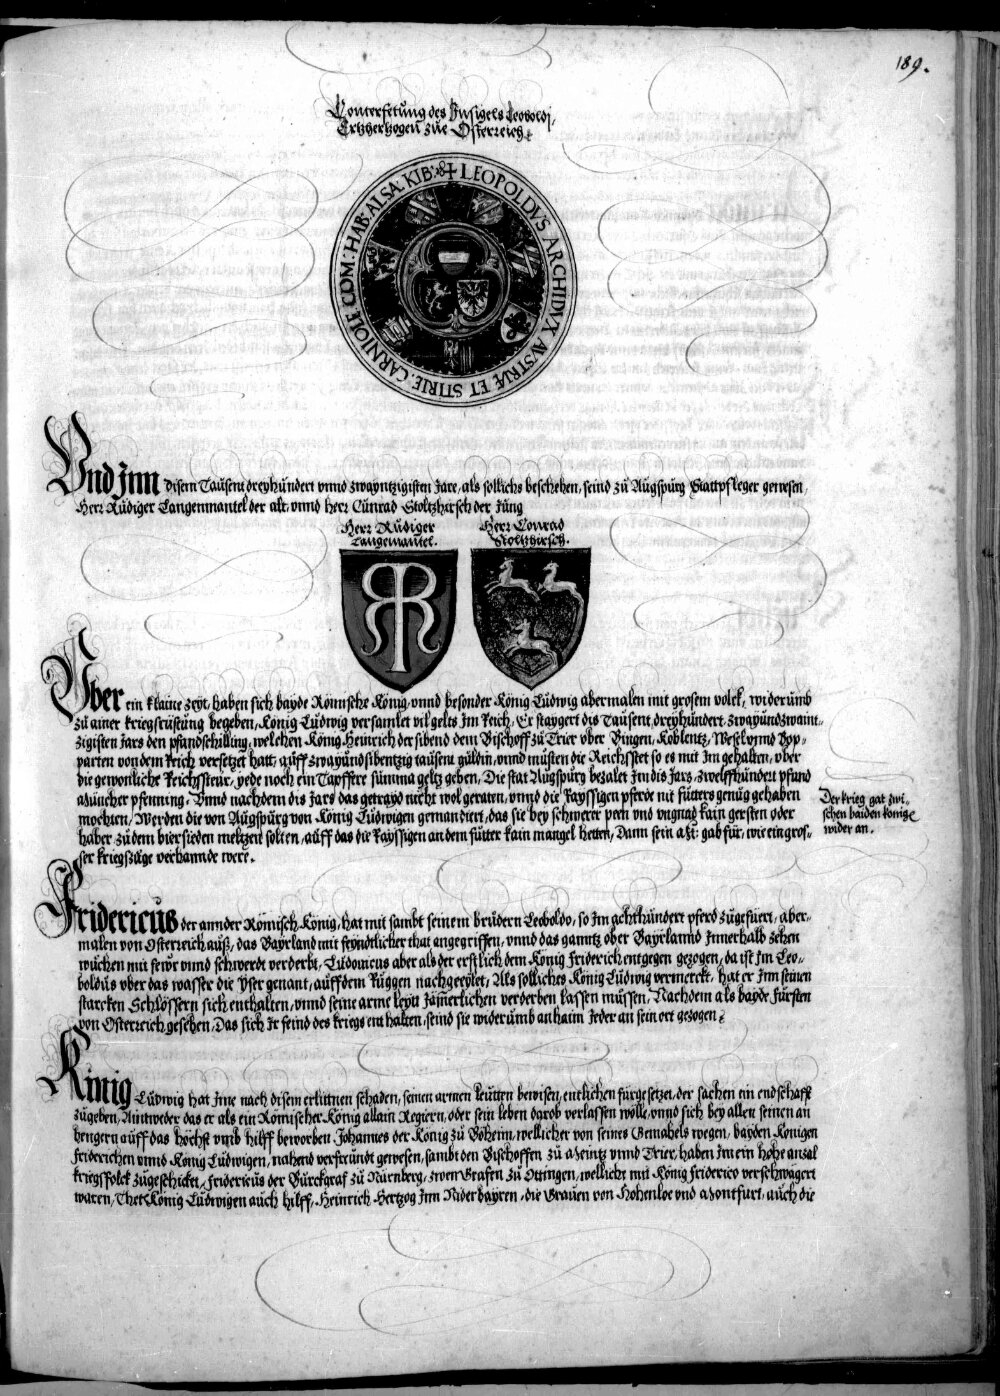 189.
Conterfetung des Insigels Leopoldi,
Ertzhertzogen zue Österreich
✠ LEOPOLDVS ARCHIDVX AVSTRIÆ ET STIRIE. CARNIOLE COM: HAB: ALSA. KIB: &
Vnd Inn disem Tausent dreyhundert vnnd zwayntzigisten Jare, als sollichs beschehen, seind zu Augspurg Stattpfleger gewesen,
Herr Rüdiger Langenmantel der alt, vnnd herr Cunrad Stoltzhirsch der Jung
Herr Rudiger
Langemantel.
Herr Conrad
Stoltzhirsch.
Vber ein klaine zeyt, haben sich bayde Römische König, vnnd besonder König Ludwig abermalen mit grosem volck, widerumb
zu ainer kriegsrüstung begeben, König Ludwig versamlet vil gelts Im Reich, Er staygert dis Tausent, dreyhundert, zwayundzwaint,,
zigisten Jars den pfandschilling, welchen König Heinrich der sibend dem Bischoff zu Trier vber Bingen, Koblentz, Wesel vnnd Bop,,
parten von dem Reich versetzet hatt, auff zwayundsibentzig tausent guldin, vnnd müsten die Reichsstet so es mit Im gehalten, vber
die gewonliche Reichssteur, yede noch ein Tapffere summa geltz geben, Die stat Augspurg bezalet Im dis Jars, zwelffhundert pfund
Müncher pfenning. Vnnd nachdem dis Jars das getrayd nicht wol geraten, vnnd die Rayssigen pferde mit futters genug gehaben
mochten, Werden die von Augspurg von König Ludwigen gemandiert, das sie bey schwerer peen vnd vngnad kain gersten oder
haber zu dem biersieden meltzen solten, auff das die Rayssigen an dem futter kain mangel hetten, Dann sein gab für, wie ein gros,,
ser kriegszuge verhannde were.
Der krieg gat zwi,,
schen baiden könige
wider an.
Fridericus der annder Römisch König, hat mit sambt seinem brudern Leoboldo, so Im achthundert pferd zugefuert, aber,,
malen von Österreich auß, das Bayrland mit feyndtlicher that angegriffen, vnnd das ganntz ober Bayrlannd Innerhalb zehen
wuchen mit fewr vnnd schwerdt verderbt, Ludouicus aber als der erstlich dem König Friderich entgegen gezogen, da ist Im Leo,,
boldus vber das wasser die Yser genant, auff dem Ruggen nachgeeylet, Als solliches König Ludwig vermerckt, hat er Inn seinen
starcken Schlössern sich enthalten, vnnd seine arme leyt Jämerlichen verderben lassen müssen, Nachdem als bayde Fürsten
von Österreich gesehen, Das sich Ir feind des kriegs enthalten, seind sie widerumb anhaim Jeder an sein ort gezogen.
König Ludwig hat Ime nach disem erlittnen schaden, seinen armen leutten bewisen, entlichen fürgesetzet, der sachen ein endschafft
zugeben, Aintweder das er als ein Römischer König allain Regiern, oder sein leben darob verlassen wölle, vnnd sich bey allen seinen an
hengern auff das höchst vmb hilff beworben Johannes der König zu Böheim, wellicher von seines Gemahels wegen, bayden Königen
Friderichen vnnd König Ludwigen, nahend verfreundt gewesen, sambt den Bischoffen zu Meintz vnnd Trier, haben Im ein hohe anzal
kriegsfolck zugeschickt, Fridericus der Burckgraf zu Nürnberg, zwen Grafen zu Ottingen, wellicht mit König Friderico verschwägert
waren, Thet König Ludwigen auch hilff, Heinrich Hertzog Inn Nider bayren, die Grauen von Hohenloe vnd Montfurt, auch die